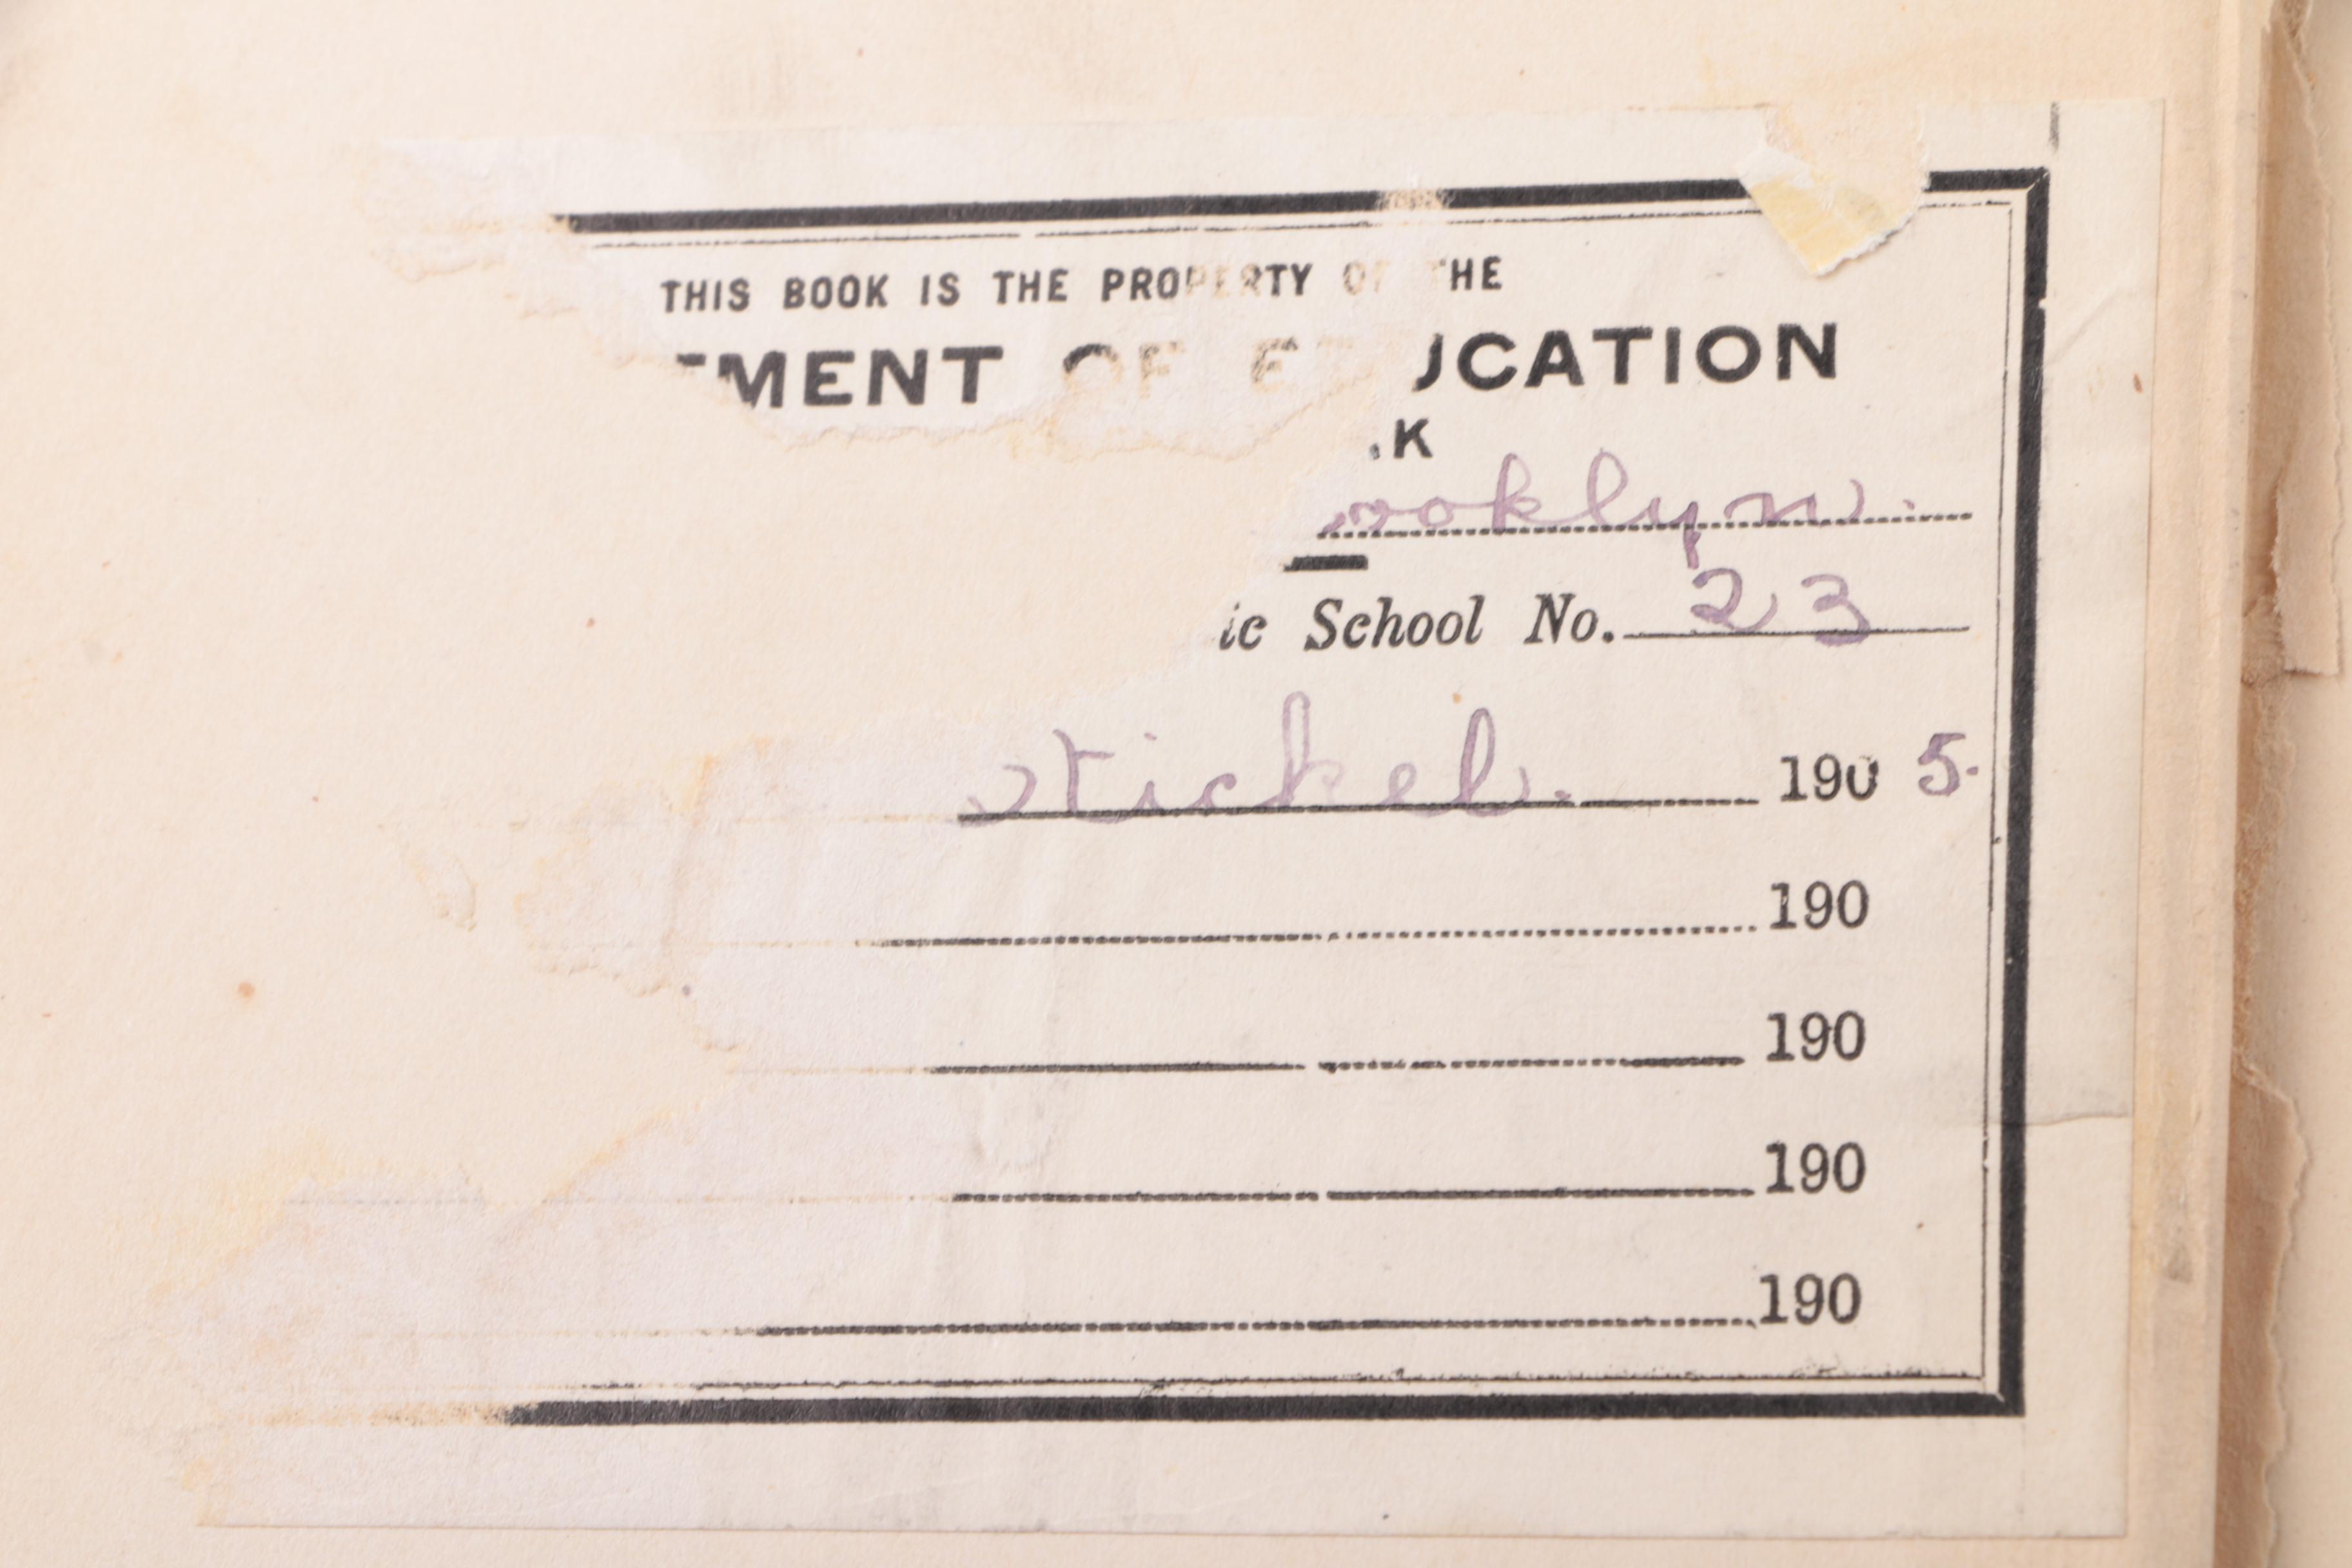 THIS BOOK IS THE PROPERTY OF THE
MENT OF EDUCATION
K
ooklyn.
ic School No. 23
Stickel. 190 5.
190
190
190
190